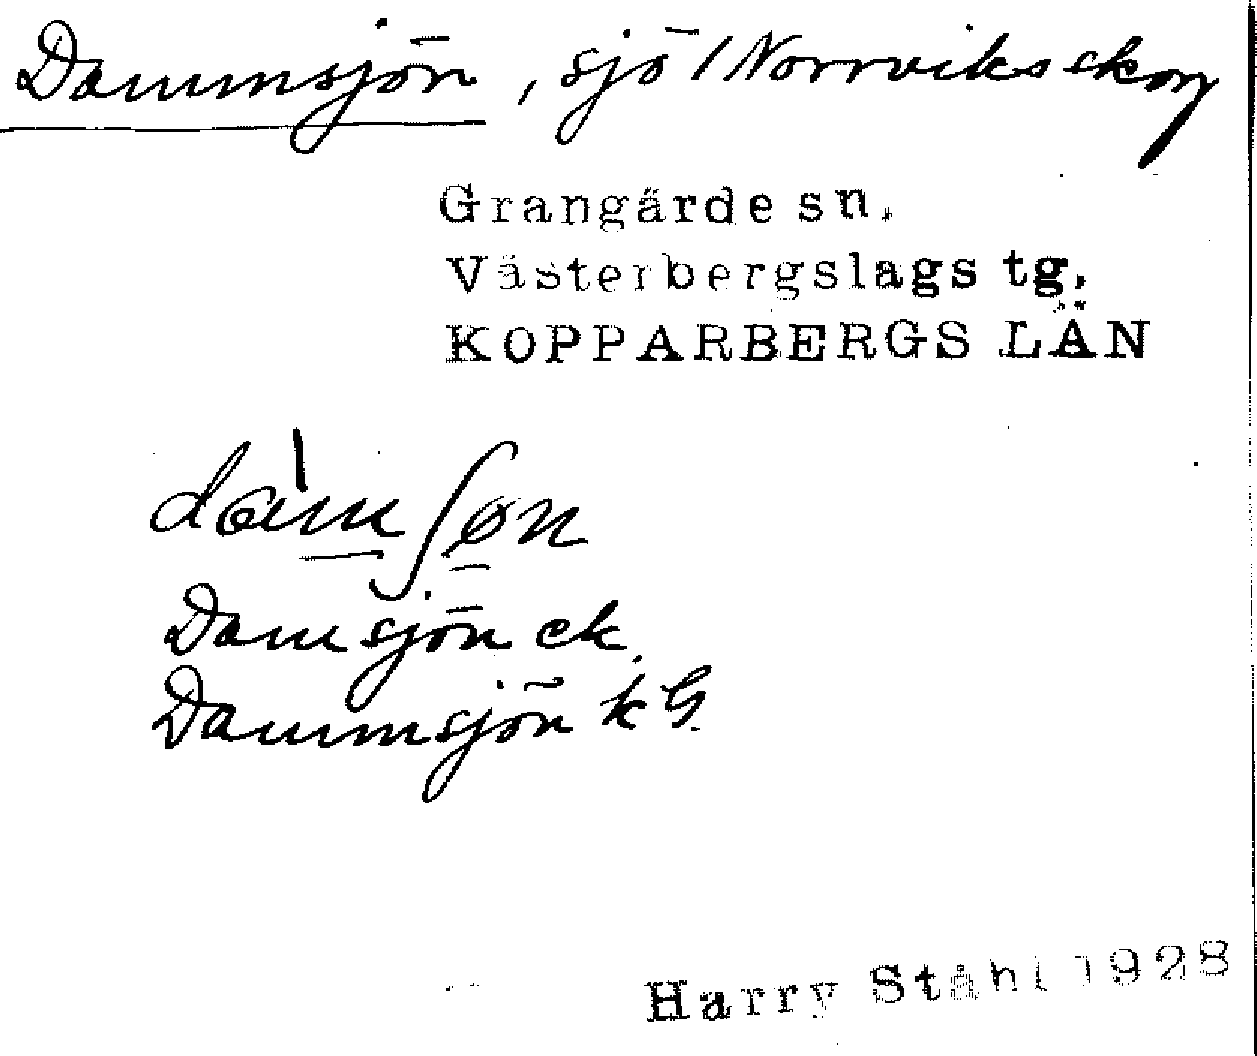 Dammsjön, sjö / Norrviks skog
Grangärde sn.
Västerbergslags tg.
KOPPARBERGS LÄN
Damsjön ek.
Dammsjön k G.
Harry Ståhl 1928